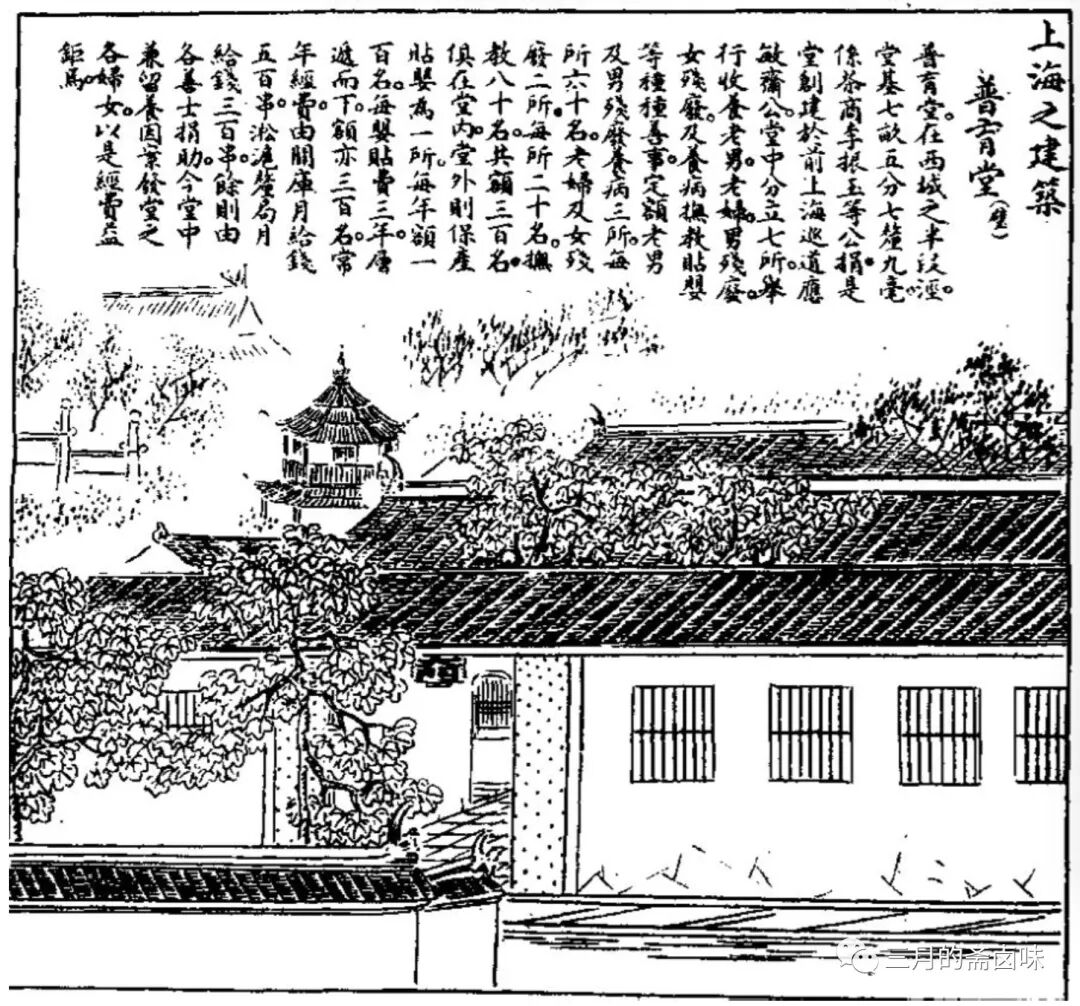 上海之建築
普育堂(璧)
普育堂。在西城之半段涇。
堂基七畝五分七釐九毫
係茶商李振玉等公捐。是
堂創建於前上海巡道應
敏齋公堂中分立七所。舉
行收養老男。老婦。男殘廢。
女殘廢。及養病撫教貼嬰
等種種善事。定額老男
及男殘廢養病三所。每
所六十名。老婦及女殘
廢二所。每所二十名。撫
教八十名。共額三百名。
俱在堂內。堂外則保產
貼嬰為一所。每年額一
百名。每嬰貼費三年。層
遞而下。額亦三百。名常
年經費。由關庫月給錢
五百串。淞滬釐局月
給錢三百串。餘則由
各善士捐助。今堂中
兼留養因案發堂之
各婦女。以是經費益
鉅焉。
三月的斋卤味